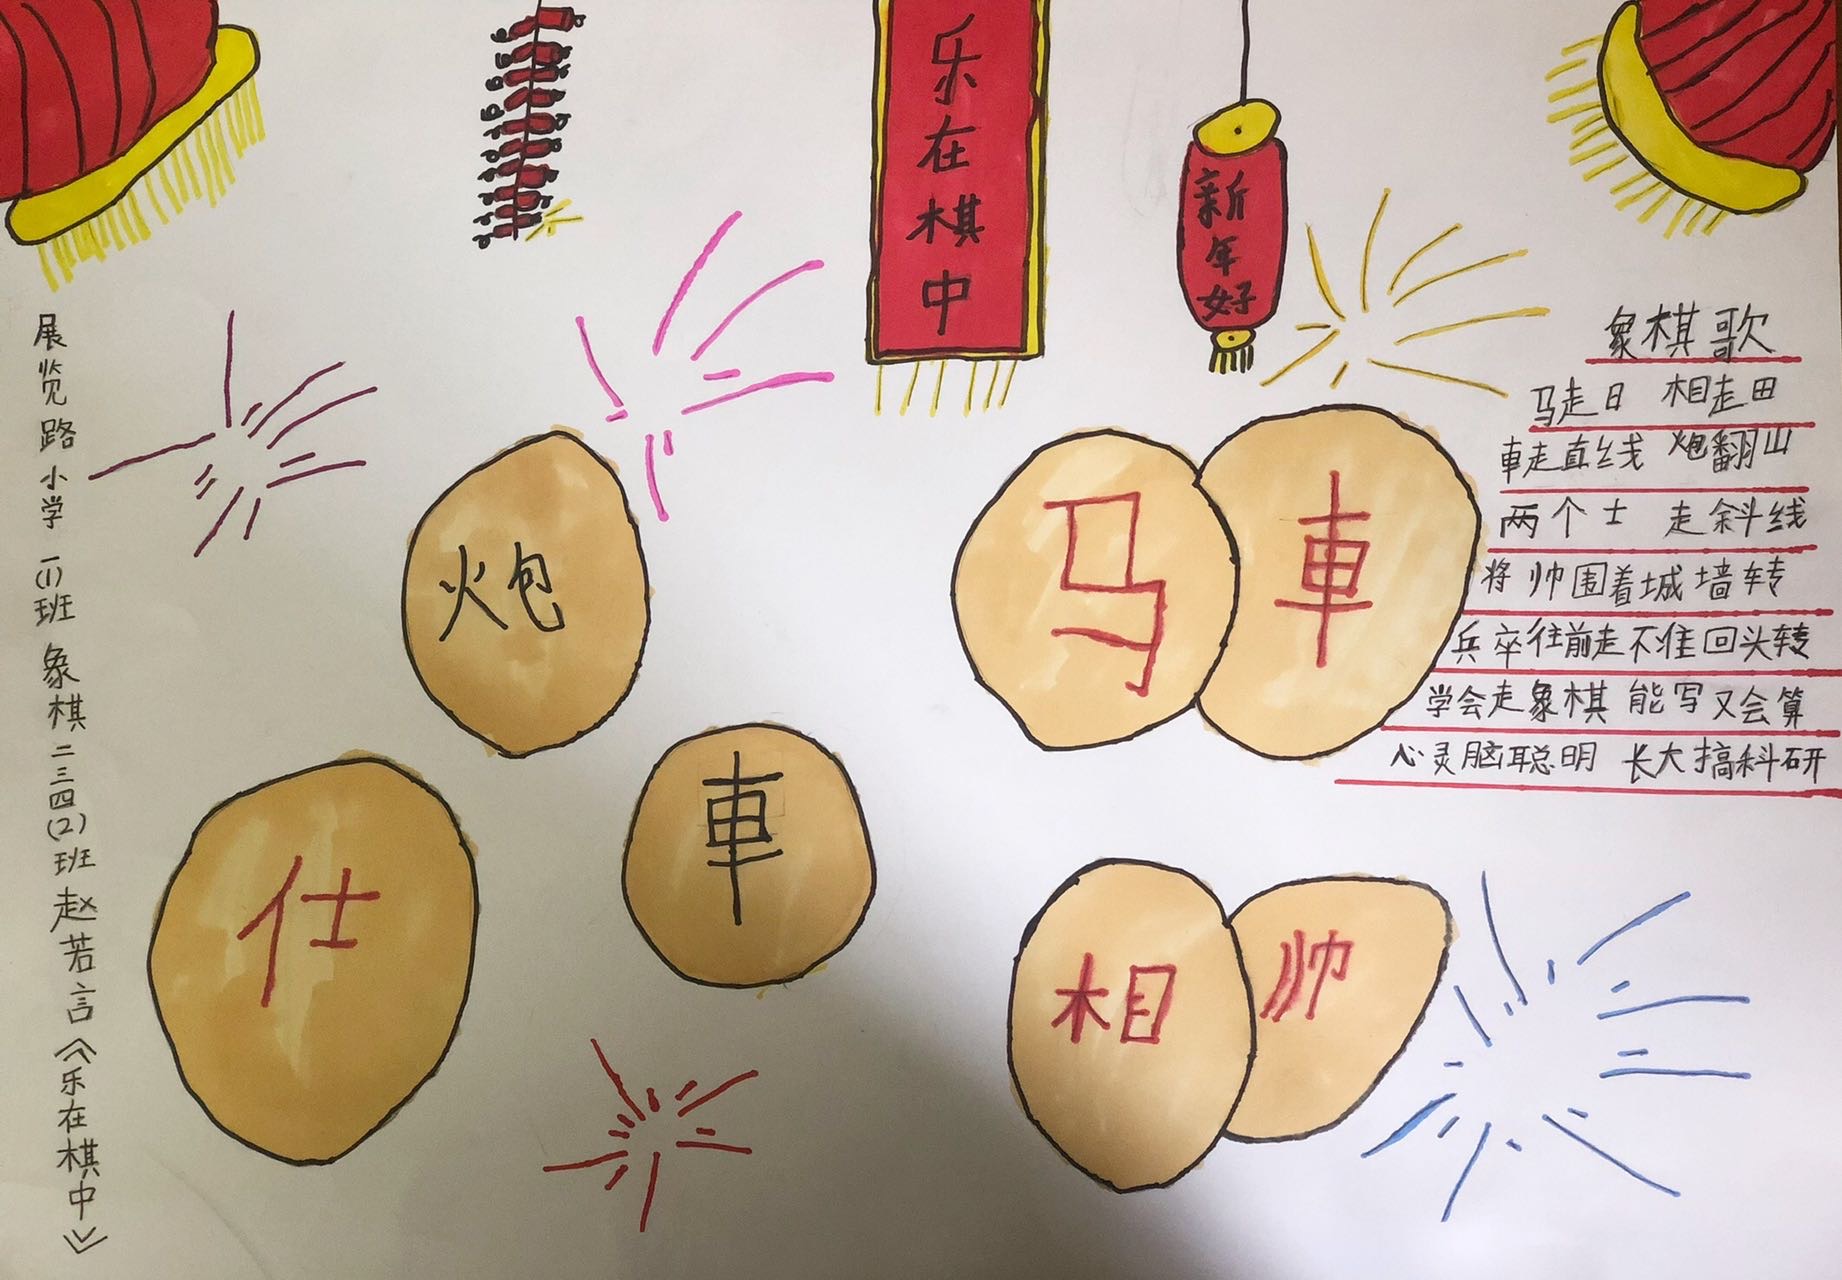 乐在棋中
新年好
展览路小学一(1)班象棋二三四(2)班赵若言《乐在棋中》
象棋歌
马走日 相走田
車走直线 炮翻山
两个士 走斜线
将帅围着城墙转
兵卒往前走不准回头转
学会走象棋 能写又会算
心灵脑聪明 长大搞科研
炮
马
車
仕
車
相
帅